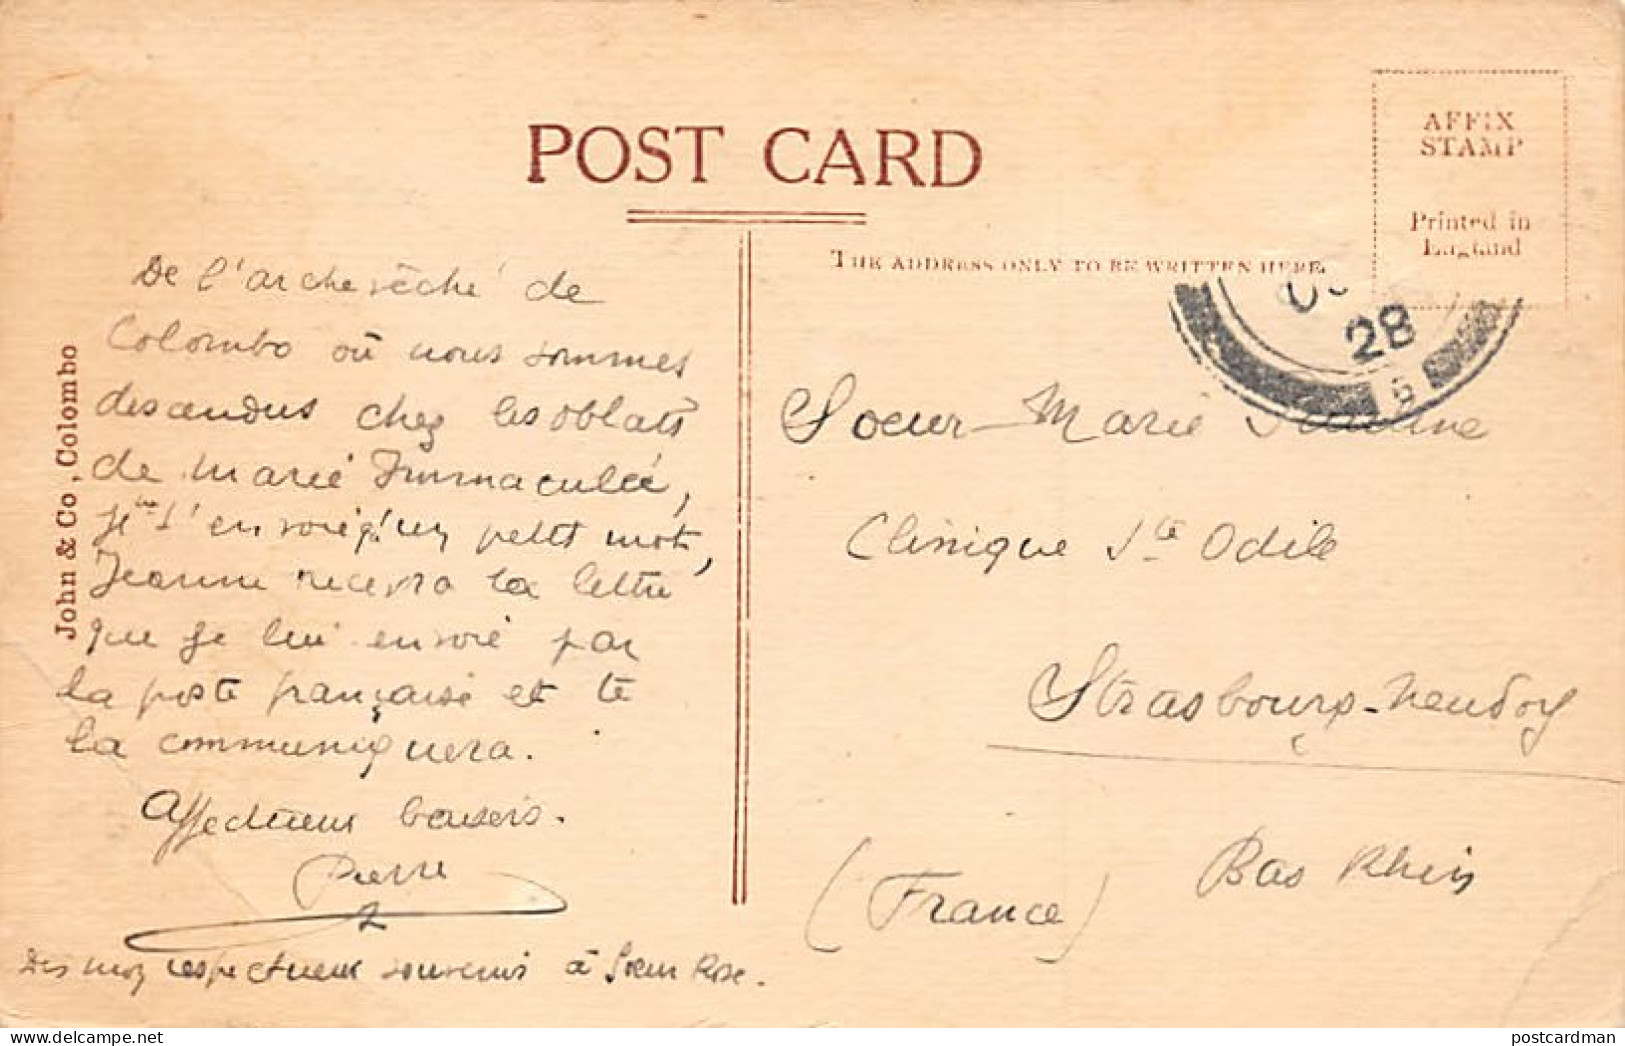 POST CARD
AFFIX
STAMP
Printed in
England
THE ADDRESS ONLY TO BE WRITTEN HERE.
28
5
John & Co, Colombo
De l'archevêché de
Colombo où nous sommes
descendus chez les oblats
de Marie Immaculée,
je t'envoie qu'un petit mot,
Jeanne recevra la lettre
que je lui envoie par
la poste française et te
la communiquera.
Affectueux baisers.
Pierre
Dis moy respectueux souvenirs à Soeur Rose.
Soeur Marie
Clinique Ste Odile
Strasbourg-Neudorf
Bas Rhin
(France)
postcardman